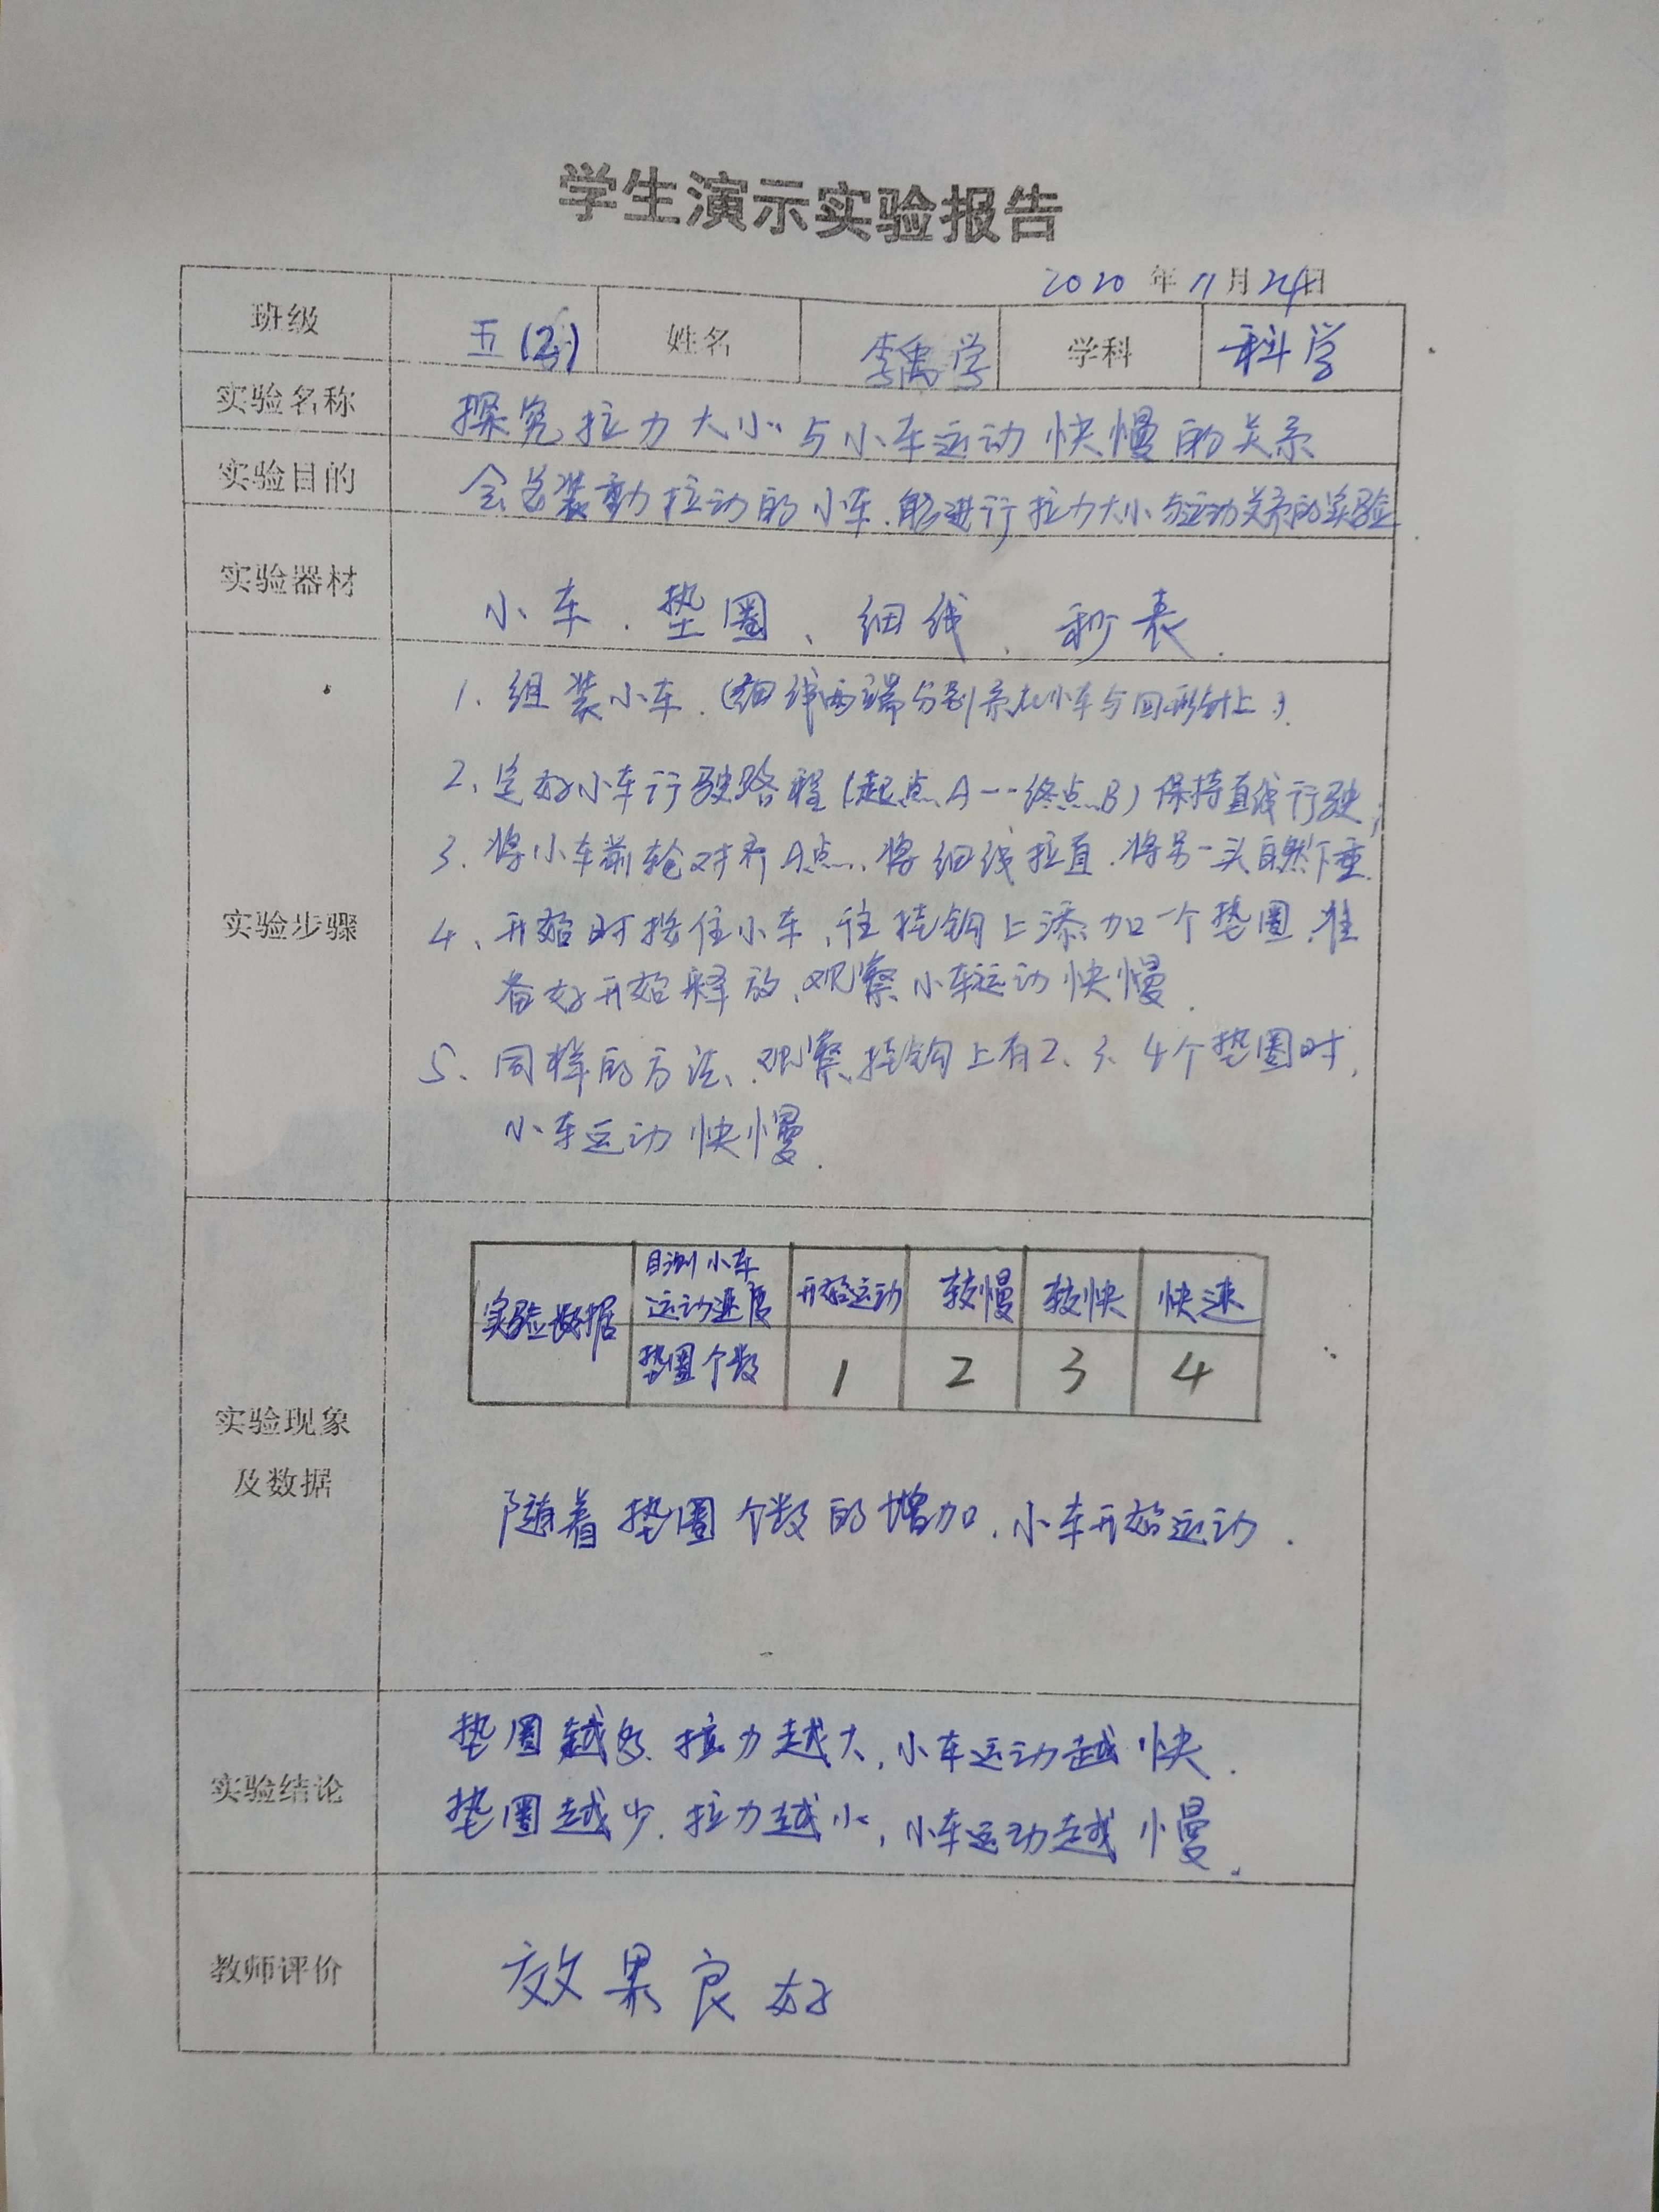 学生演示实验报告
2020年11月24日
班级 五(2) 姓名 李禹学 学科 科学
实验名称 探究拉力大小与小车运动快慢的关系
实验目的 会安装動拉动的小车.能进行拉力大小与运动关系的实验
实验器材 小车.垫圈、细线、秒表.
1.组装小车.(细线两端分别系在小车与回形针上).
2、定好小车行驶路程(起点A--终点B)保持直线行驶;
3.将小车前轮对齐A点.将细线拉直.将另一头自然下垂.
实验步骤
4、开始时按住小车,往挂钩上添加一个垫圈.准
备好开始释放、观察小车运动快慢.
5、同样的方法、观察挂钩上有2、3、4个垫圈时,
小车运动快慢.
实验数据 目测小车运动速度 开始运动 较慢 较快 快速
垫圈个数 1 2 3 4
实验现象
及数据
随着垫圈个数的增加.小车开始运动.
垫圈越多.拉力越大,小车运动越快.
实验结论
垫圈越少.拉力越小,小车运动越慢.
教师评价 效果良好